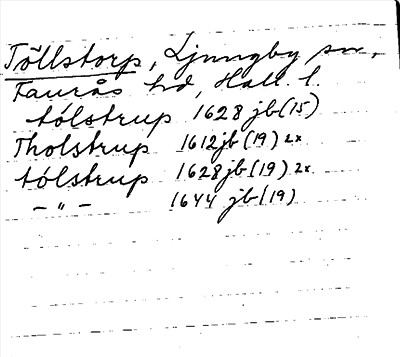 Töllstorp, Ljungby sn,
Faurås hd, Hall. l.
tólstrup 1628 jb (15)
Tholstrup 1612 jb (19) 2x
tólstrup 1628 jb (19) 2x.
– " – 1644 jb (19)